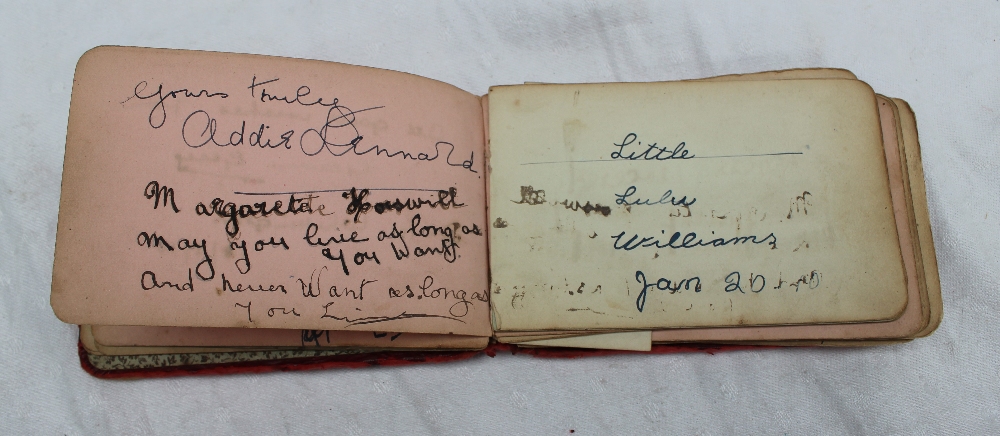 Yours truly
Addie Lennard.
Margareta Horswill
May you live as long as
You Want.
And never Want as long as
You Live
Little
Lulu
Williams
Jan 20